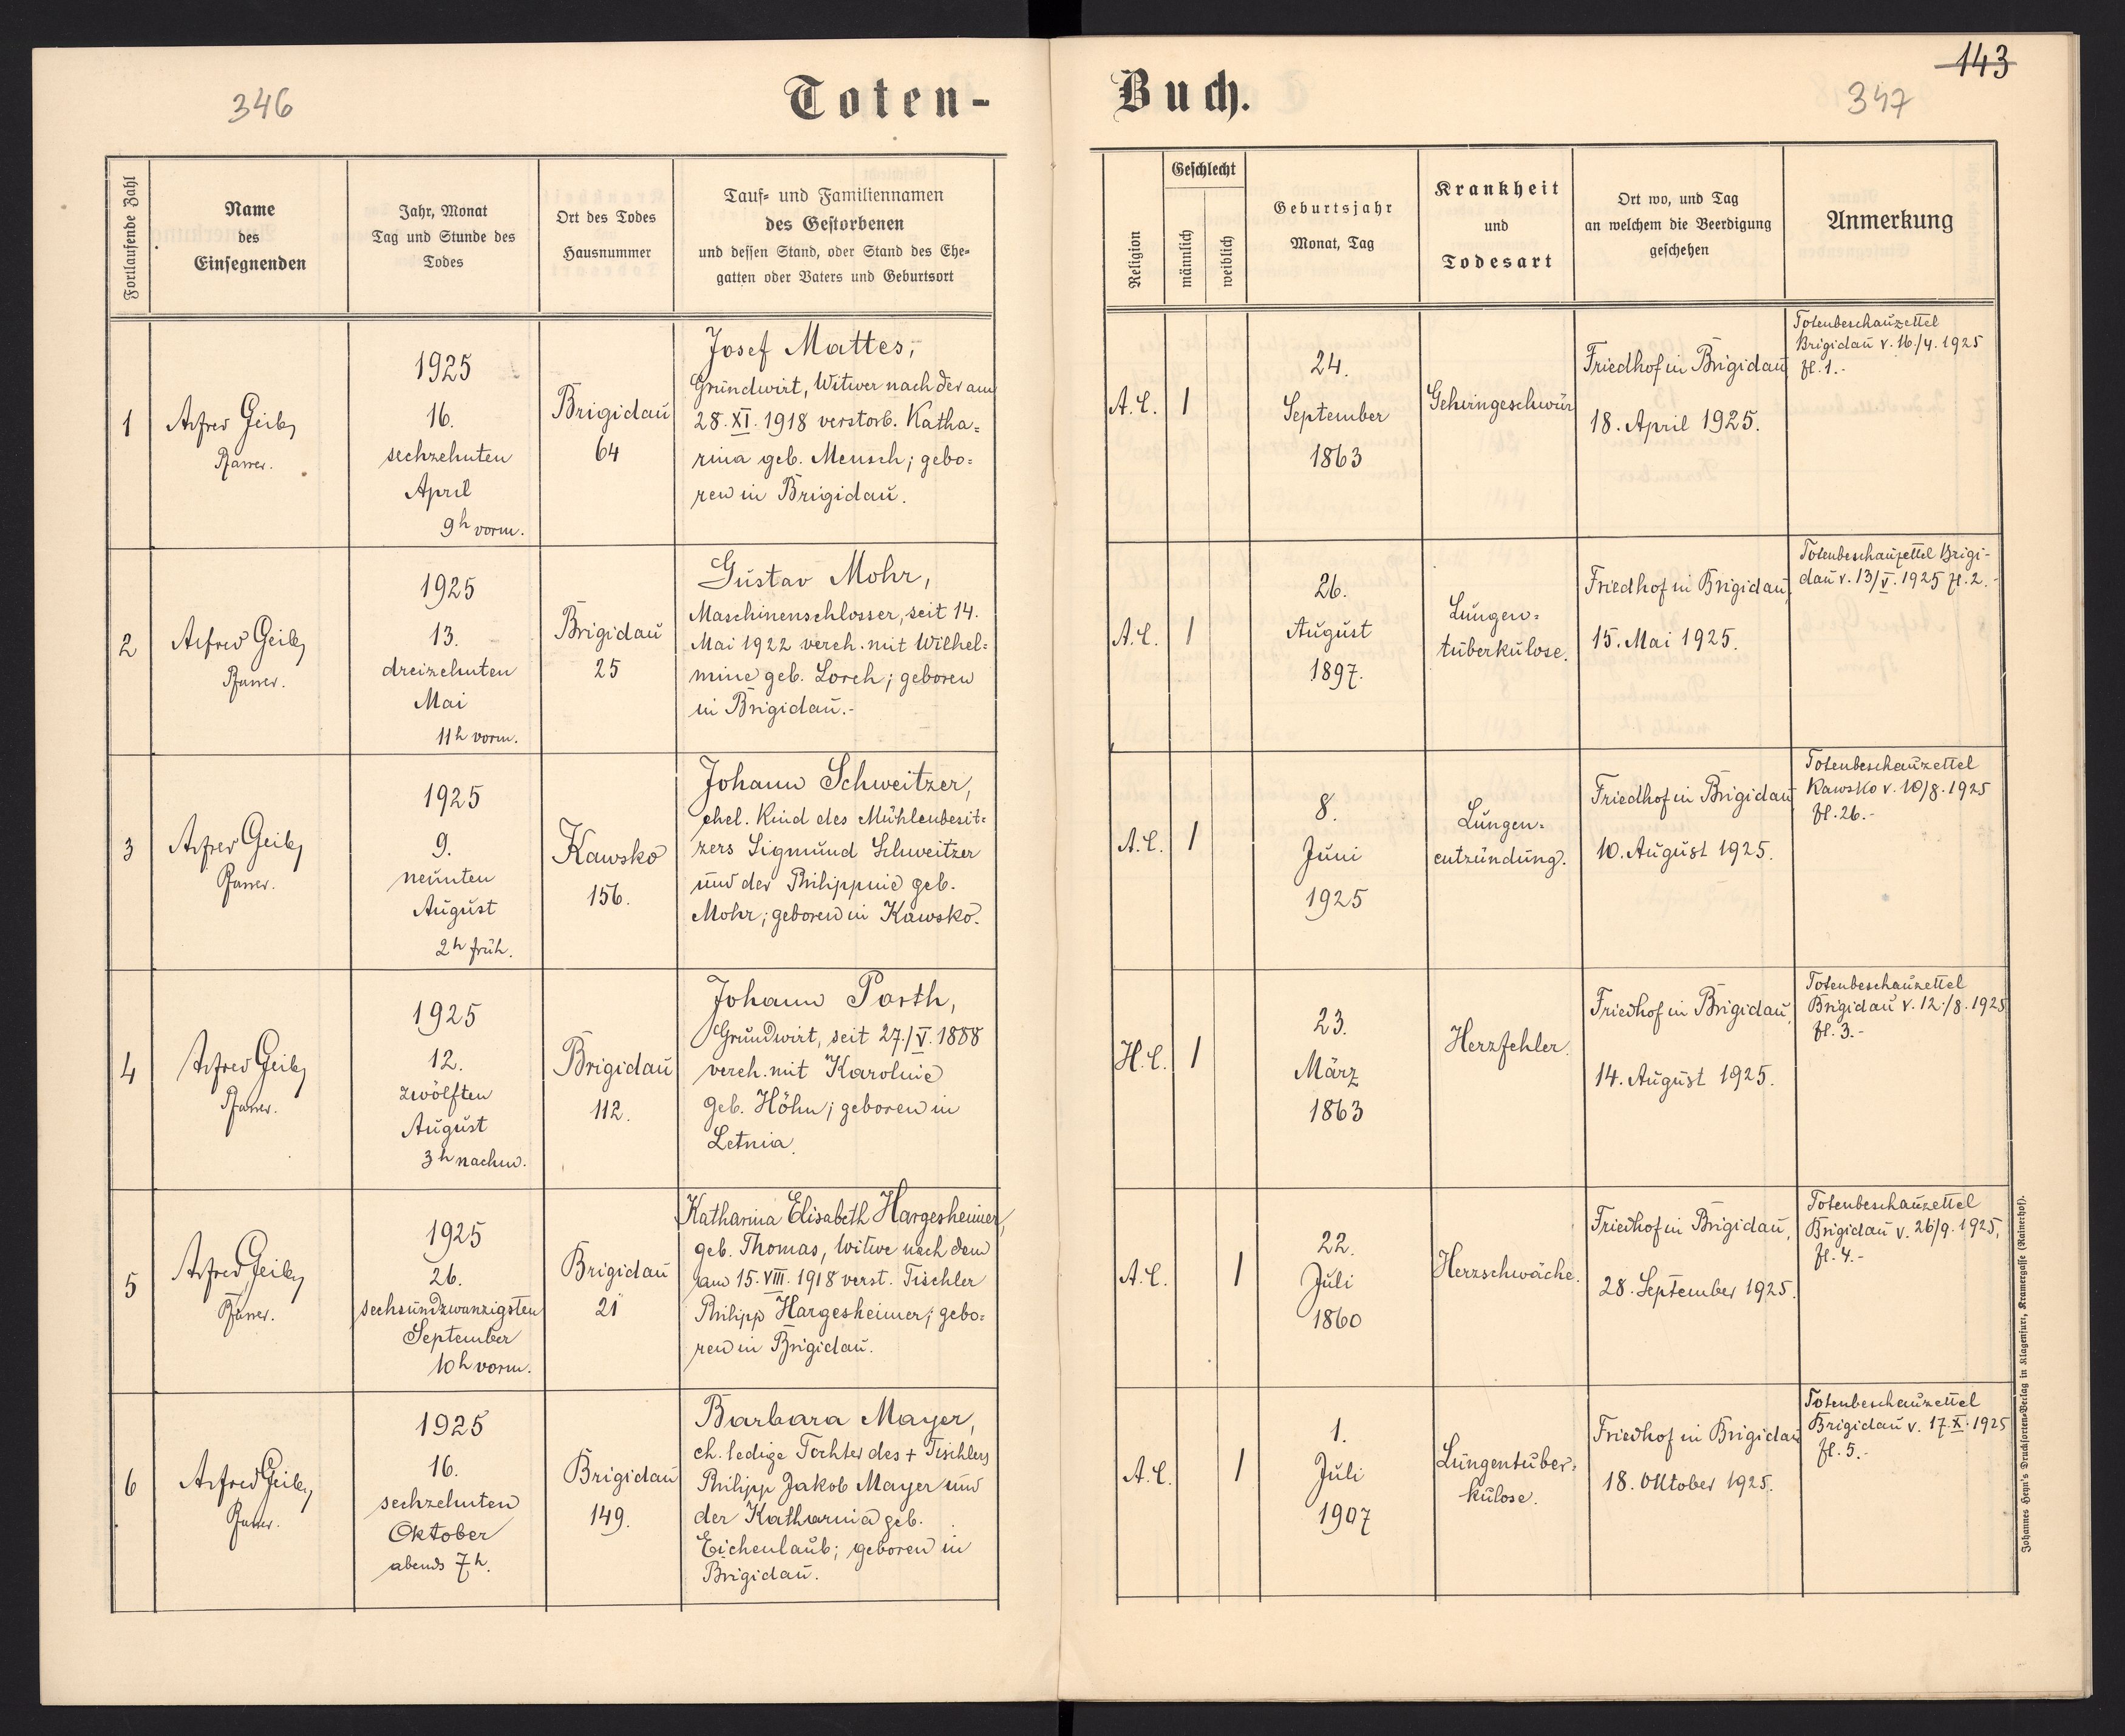 346
Toten-
Fortlaufende Zahl
Name
des
Einsegnenden
Jahr, Monat
Tag und Stunde des
Todes
Ort des Todes
Hausnummer
Tauf- und Familiennamen
des Gestorbenen
und dessen Stand, oder Stand des Ehe-
gatten oder Vaters und Geburtsort
1
Alfred Geib,
Pfarrer.
1925
16.
sechzehnten
April
9h vorm.
Brigidau
64
Josef Mattes,
Grundwirt, Witwer nach der am
28. XI. 1918 verstorb. Katha-
rina geb. Mensch; gebo-
ren in Brigidau.
2
Alfred Geib,
Pfarrer.
1925
13.
dreizehnten
Mai
11h vorm.
Brigidau
25
Gustav Mohr,
Maschinenschlosser, seit 14.
Mai 1922 vereh. mit Wilhel-
mine geb. Lorch; geboren
in Brigidau.-
3
Alfred Geib,
Pfarrer.
1925
9.
neunten
August
2h früh.
Kawsko
156.
Johann Schweitzer,
ehel. Kind des Mühlenbesit-
zers Sigmund Schweitzer
und der Philippine geb.
Mohr; geboren in Kawsko.
4
Alfred Geib,
Pfarrer.
1925
12.
zwölften
August
3h nachm.
Brigidau
112.
Johann Porth,
Grundwirt, seit 27./V. 1888
vereh. mit Karoline
geb. Höhn; geboren in
Letnia.
5
Alfred Geib,
Pfarrer.
1925
26.
sechsundzwanzigsten
September
10h vorm.
Brigidau
21
Katharina Elisabeth Hargesheimer,
geb. Thomas, Witwe nach dem
am 15. VIII. 1918 verst. Tischler
Philipp Hargesheimer; gebo-
ren in Brigidau.
6
Alfred Geib,
Pfarrer.
1925
16.
sechzehnten
Oktober
abends 7h.
Brigidau
149.
Barbara Mayer,
eh. ledige Tochter des + Tischlers
Philipp Jakob Mayer und
der Katharina geb.
Eichenlaub; geboren in
Brigidau.
143
347
Buch.
Religion
Geschlecht
männlich
weiblich
Geburtsjahr
Monat, Tag
Krankheit
und
Todesart
Ort wo, und Tag
an welchem die Beerdigung
geschehen
Anmerkung
A.C.
1
24.
September
1863
Gehirngeschwür
Friedhof in Brigidau,
18. April 1925.
Totenbeschauzettel
Brigidau v. 16./4. 1925
Zl. 1.-
A.C.
1
26.
August
1897.
Lungen-
tuberkulose.
Friedhof in Brigidau,
15. Mai 1925.
Totenbeschauzettel Brigi-
dau v. 13/V. 1925 Zl. 2.-
A.C.
1
8.
Juni
1925
Lungen-
entzündung.
Friedhof in Brigidau,
10. August 1925.
Totenbeschauzettel
Kawsko v. 10/8. 1925
Zl. 26.-
H.C.
1
23.
März
1863
Herzfehler.
Friedhof in Brigidau,
14. August 1925.
Totenbeschauzettel
Brigidau v. 12./8. 1925
Zl. 3.-
A.C.
1
22.
Juli
1860
Herzschwäche.
Friedhof in Brigidau,
28. September 1925.
Totenbeschauzettel
Brigidau v. 26/9. 1925,
Zl. 4.-
A.C.
1
1.
Juli
1907
Lungentuber-
kulose.
Friedhof in Brigidau
18. Oktober 1925.
Totenbeschauzettel
Brigidau v. 17. X. 1925
Zl. 5.-
Johannes Heyn's Drucksorten-Verlag in Klagenfurt, Kramergasse (Rainerhof).